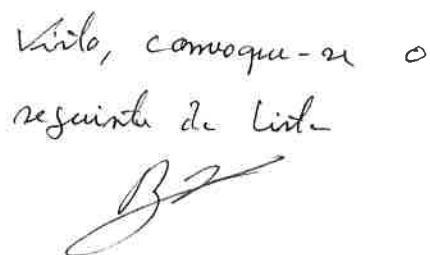 Visto, convoque-se o
seguinte da lista